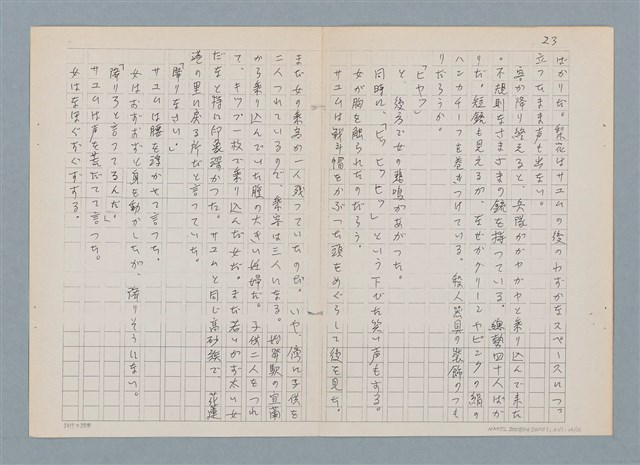 23
ばかりだ。梨花はサユムの後のわずかなスペースにつっ
立ったまま声も出ない。
兵が降り終えると、兵隊がガヤガヤと乗り込んで来た
。不規則なさまざまの銃を持っている。総勢四十人ばか
りだ。短銃も見えるが、なぜかグリーンやピンクの絹の
ハンカチーフを巻きつけている。殺人器具の装飾のつも
りだろうか。
「ヒャッ」
と、後方で女の悲鳴があがった。
同時に、「ヒッヒッヒッ」という下びた笑い声もする。
女が胸を触られたのだろう。
サユムは戦斗帽をかぶった頭をめぐらして後を見た。
まだ女の乗客が一人残っていたのだ。いや、傍に子供を
二人つれているので、乗客は三人になる。始発駅の宜蘭
から乗り込んでいた腹の大きい妊婦だ。子供二人をつれ
て、キップ一枚で乗り込んだ女だ。まだ若いが太い女
だなと特に印象深かった。サユムと同じ高砂族で、花蓮
港の里に戻る所だと言っていた。
「降りなさい」
サユムは腰を浮かせて言った。
女はおずおずと身を動かしたが、降りそうにない。
「降りろと言ってるんだ」
サユムは声を荒だてて言った。
女はなおぐずぐずする。